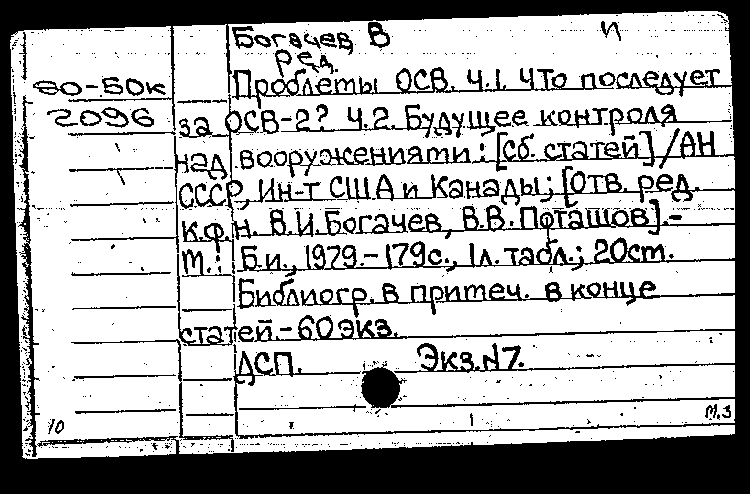 Богачев В И
ред.
80-50к Проблеты ОСВ. Ч.1. Что последует
2096 за ОСВ-2? Ч.2. Будущее контроля
над вооруженияти: [сб. статей] / АН
СССР, Ин-т США и Канады; [Отв. ред.
к.ф.н. В.И. Богачев, В.В. Поташов].-
М.: Б.и., 1979.-179с., 1л. табл.; 20ст.
Библиогр. в притеч. в конце
статей.-60экз.
ДСП. Экз.N7.
10 М.З